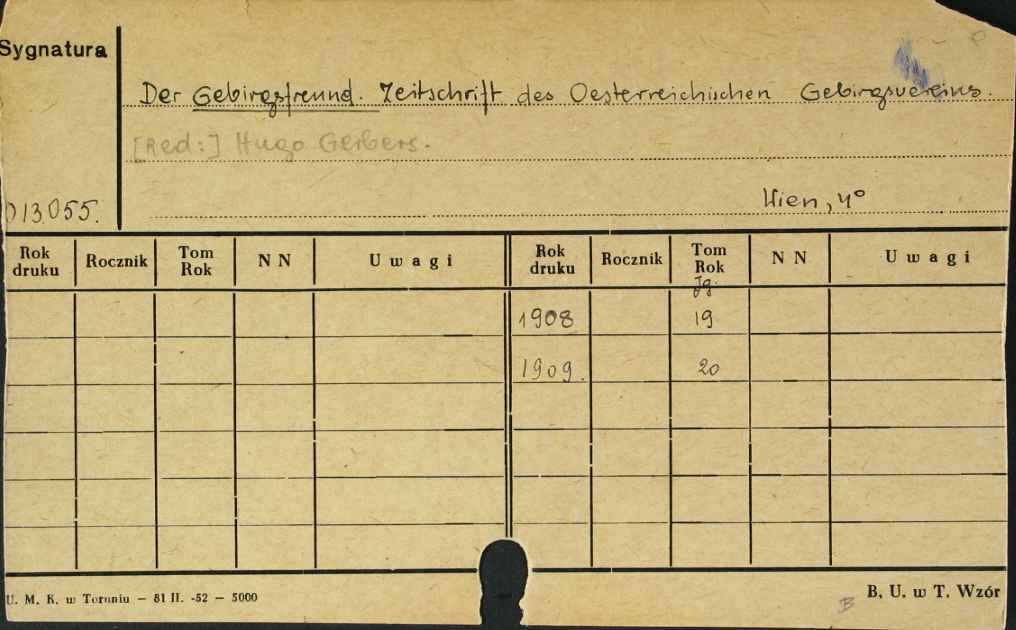 Sygnatura
Der Gebirgsfreund. Zeitschrift des Oesterreichischen Gebirgsvereins.
[Red:] Hugo Gerbers.
Wien, 4°
013055.
Rok druku Rocznik Tom Rok N N Uwagi Rok druku Rocznik Tom Rok N N Uwagi
Jg.
1908 19
1909. 20
U. M. K. w Toruniu — 81 II. -52 — 5000
B. U. w T. Wzór
B